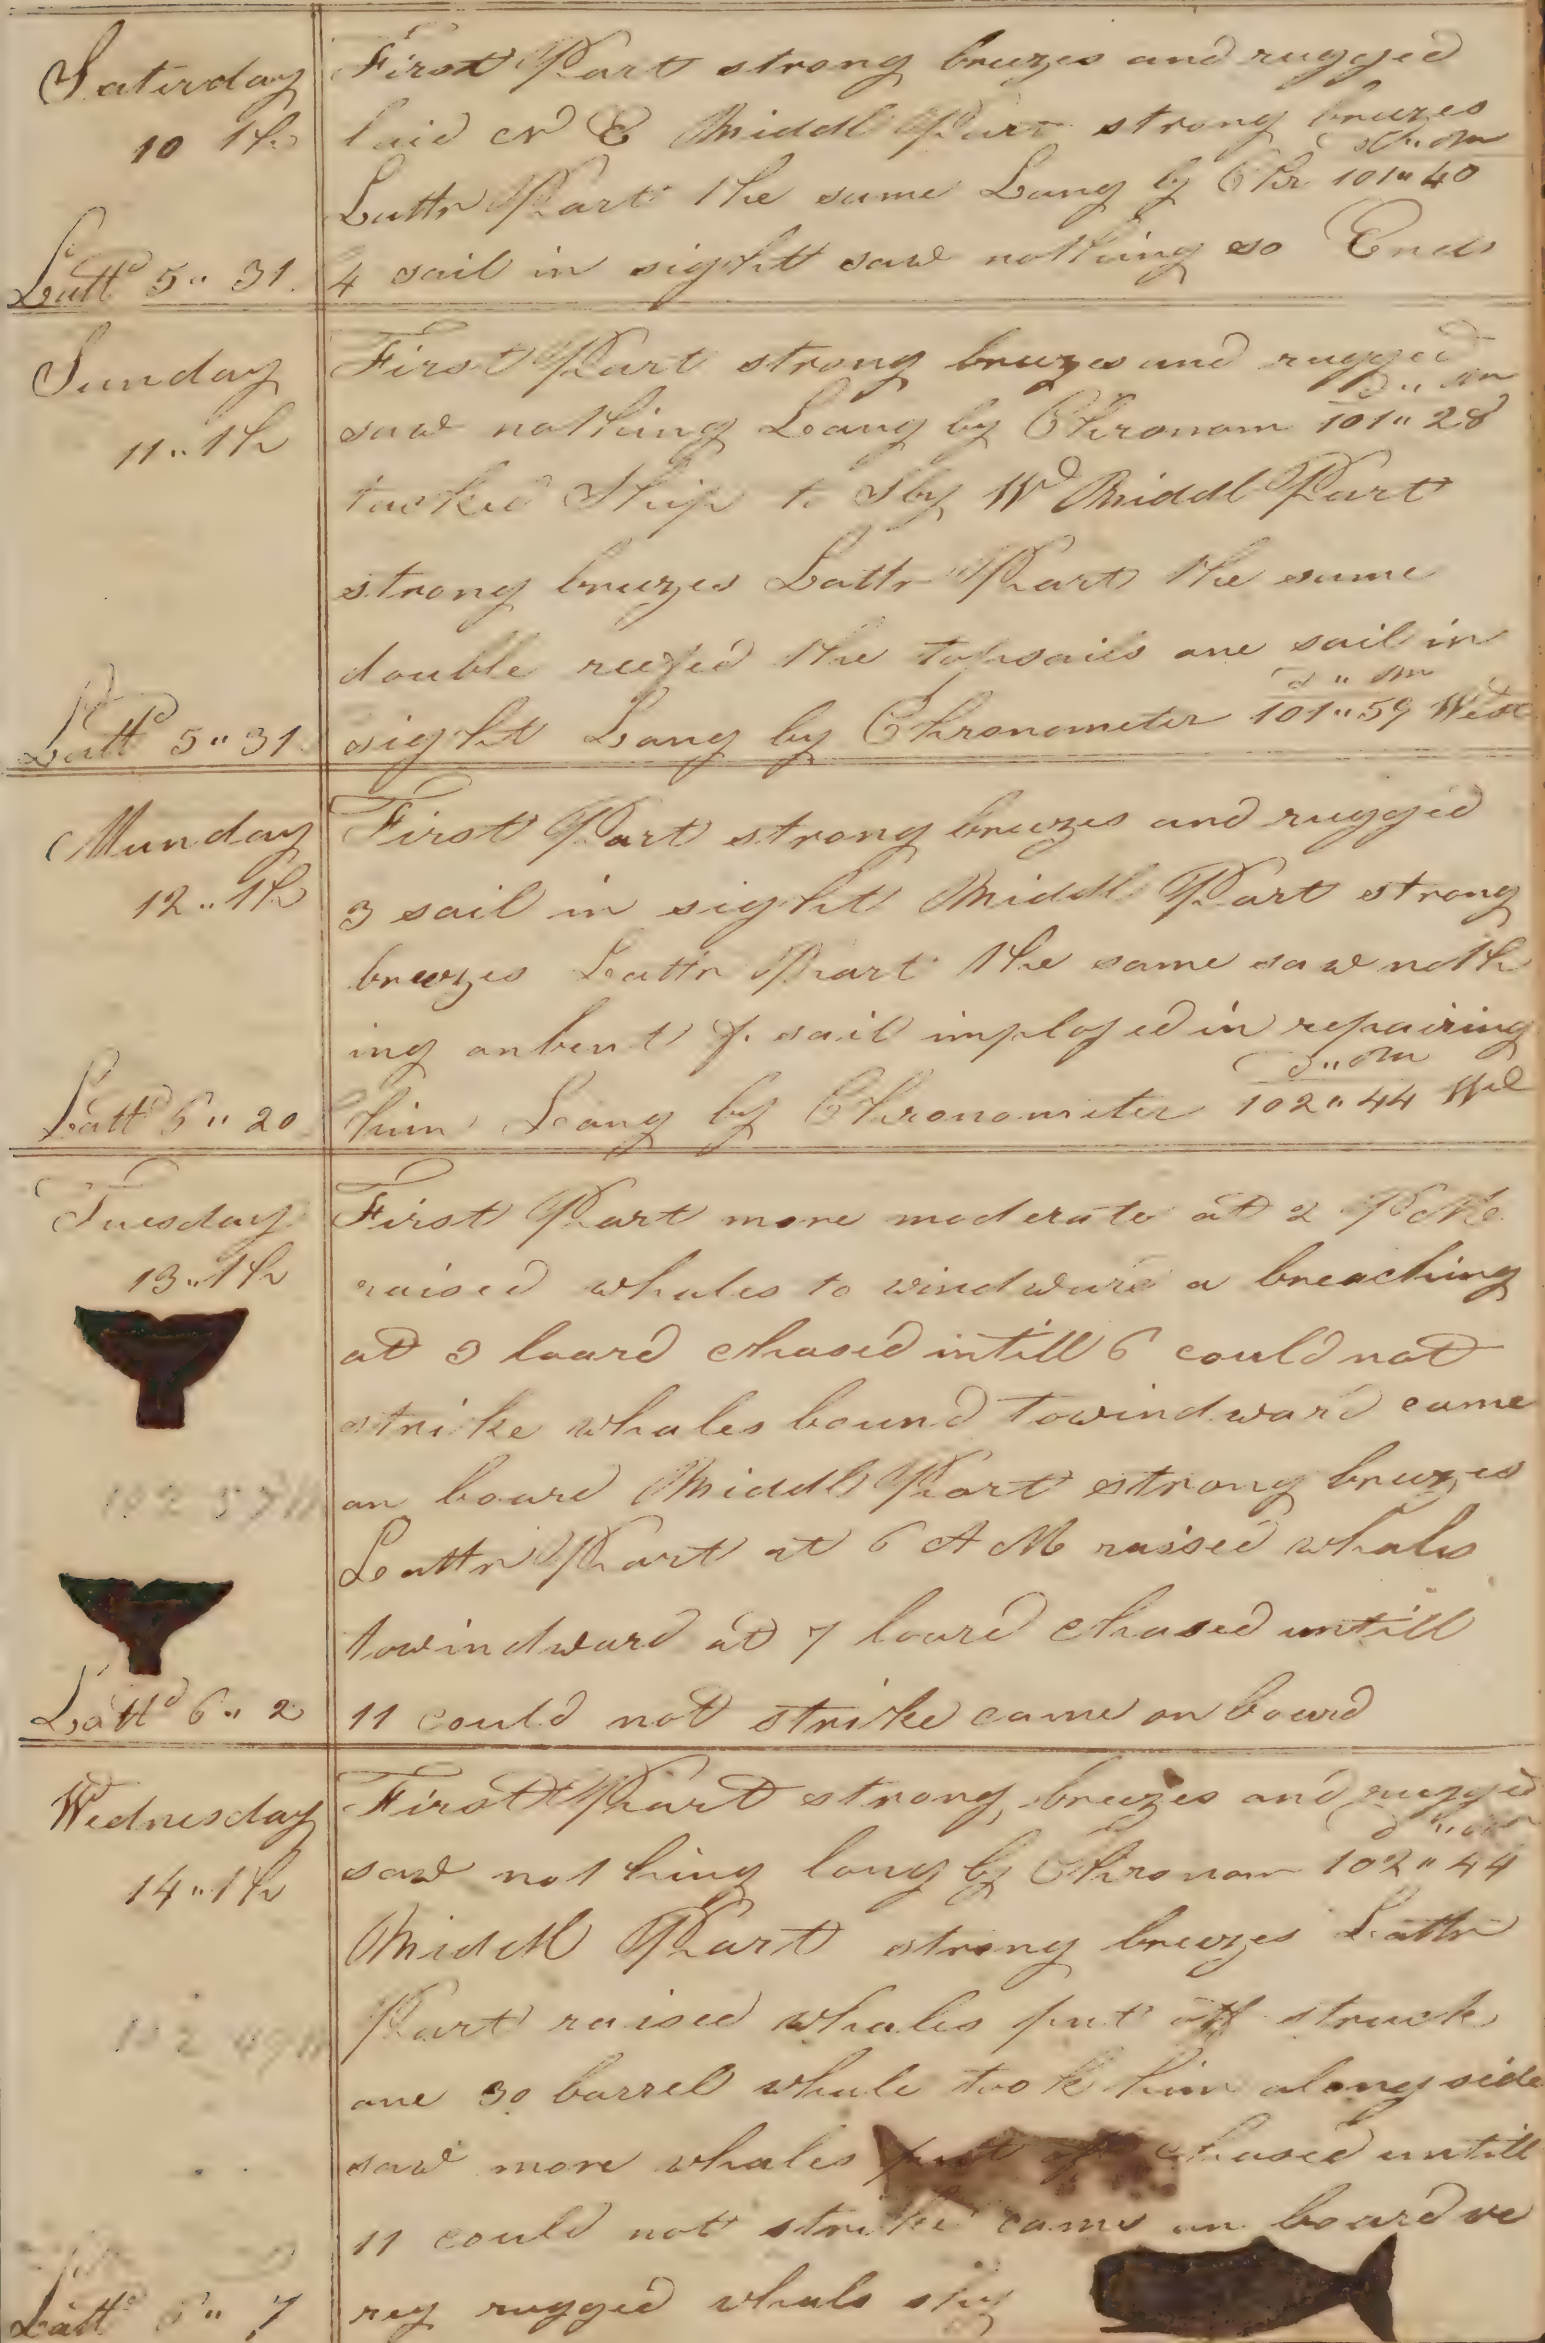 Saterday
10 th
Lattd 5" 31
First Part strong breezes and rugged
laid N E Middl Part strong breezes
d " m
Lattr Part the same Long by Chr 101" 40
4 sail in sightt saw nothing so Ends
Sunday
11" th
Lattd 5" 31
First Part strong breezes and rugged
d " m
saw nothing Long by Chronom 101" 28
tacked Ship to S by Wd Middl Part
strong breezes Lattr Part the same
double reefed the topsails one sail in
d " m
sight Long by Chronometer 101" 59 West
Munday
12" th
Lattd 5" 20
First Part strong breezes and rugged
3 sail in sight Middl Part strong
breezes Lattr Part the same saw noth
ing onbent f. sail imployed in repairing
d " m
him Long by Chronometer 102" 44 Wd
Tuesday
13" th
102 57
Lattd 6" 2
First Part more moderate at 2 P M
raised whales to windward a breaching
at 3 loard chased intill 6 could not
strike whales bound towindward came
on board Middl Part strong breezes
Lattr Part at 6 A M raised whales
towindward at 7 loard chased untill
11 could not strike came on board
Wednesday
14" th
102 49
Lattd " 7
First Part strong breezes and rugged
d " m
saw nothing long by Chronom 102" 44
Middl Part strong breezes Lattr
Part raised whales put off struck
one 30 barrel whale took him alongside
saw more whales put of chased untill
11 could not strike came on board ve
rey rugged whals shy